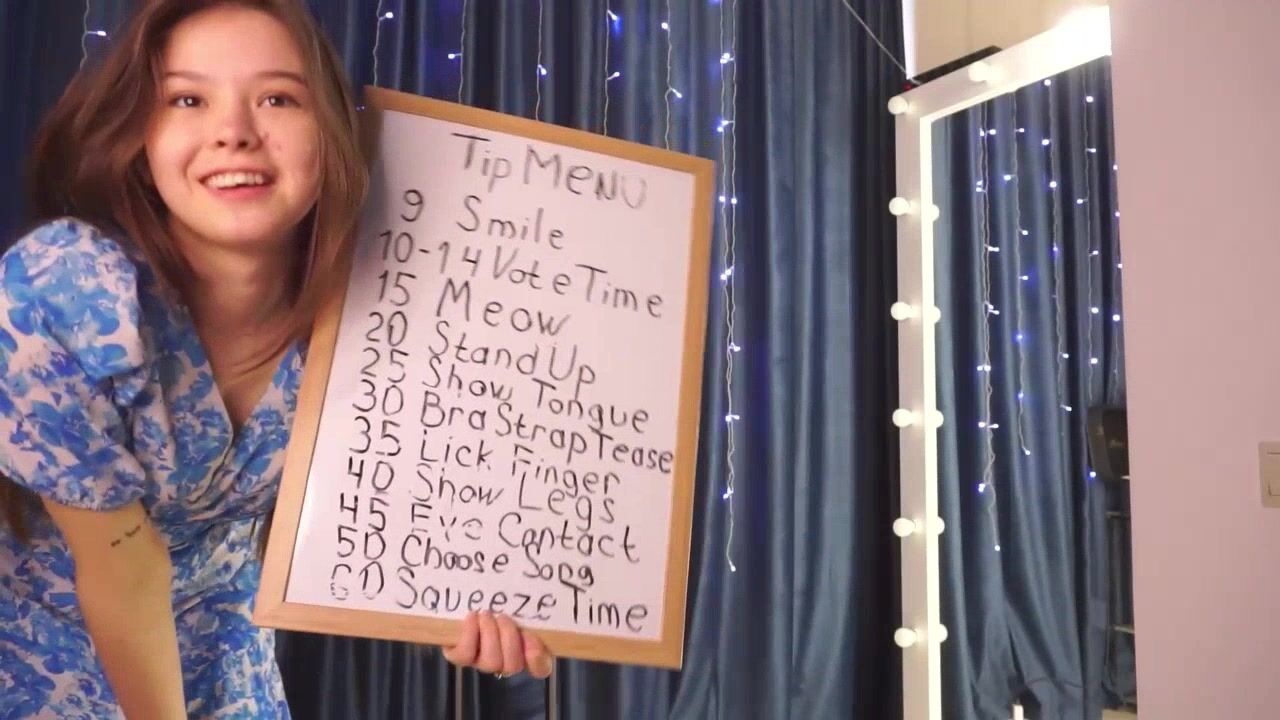 Tip MENU
9 Smile
10-14 Vote Time
15 Meow
20 Stand Up
25 Show Tongue
30 Bra Strap Tease
35 Lick Finger
40 Show Legs
45 Eye Contact
50 Choose Song
60 Squeeze Time